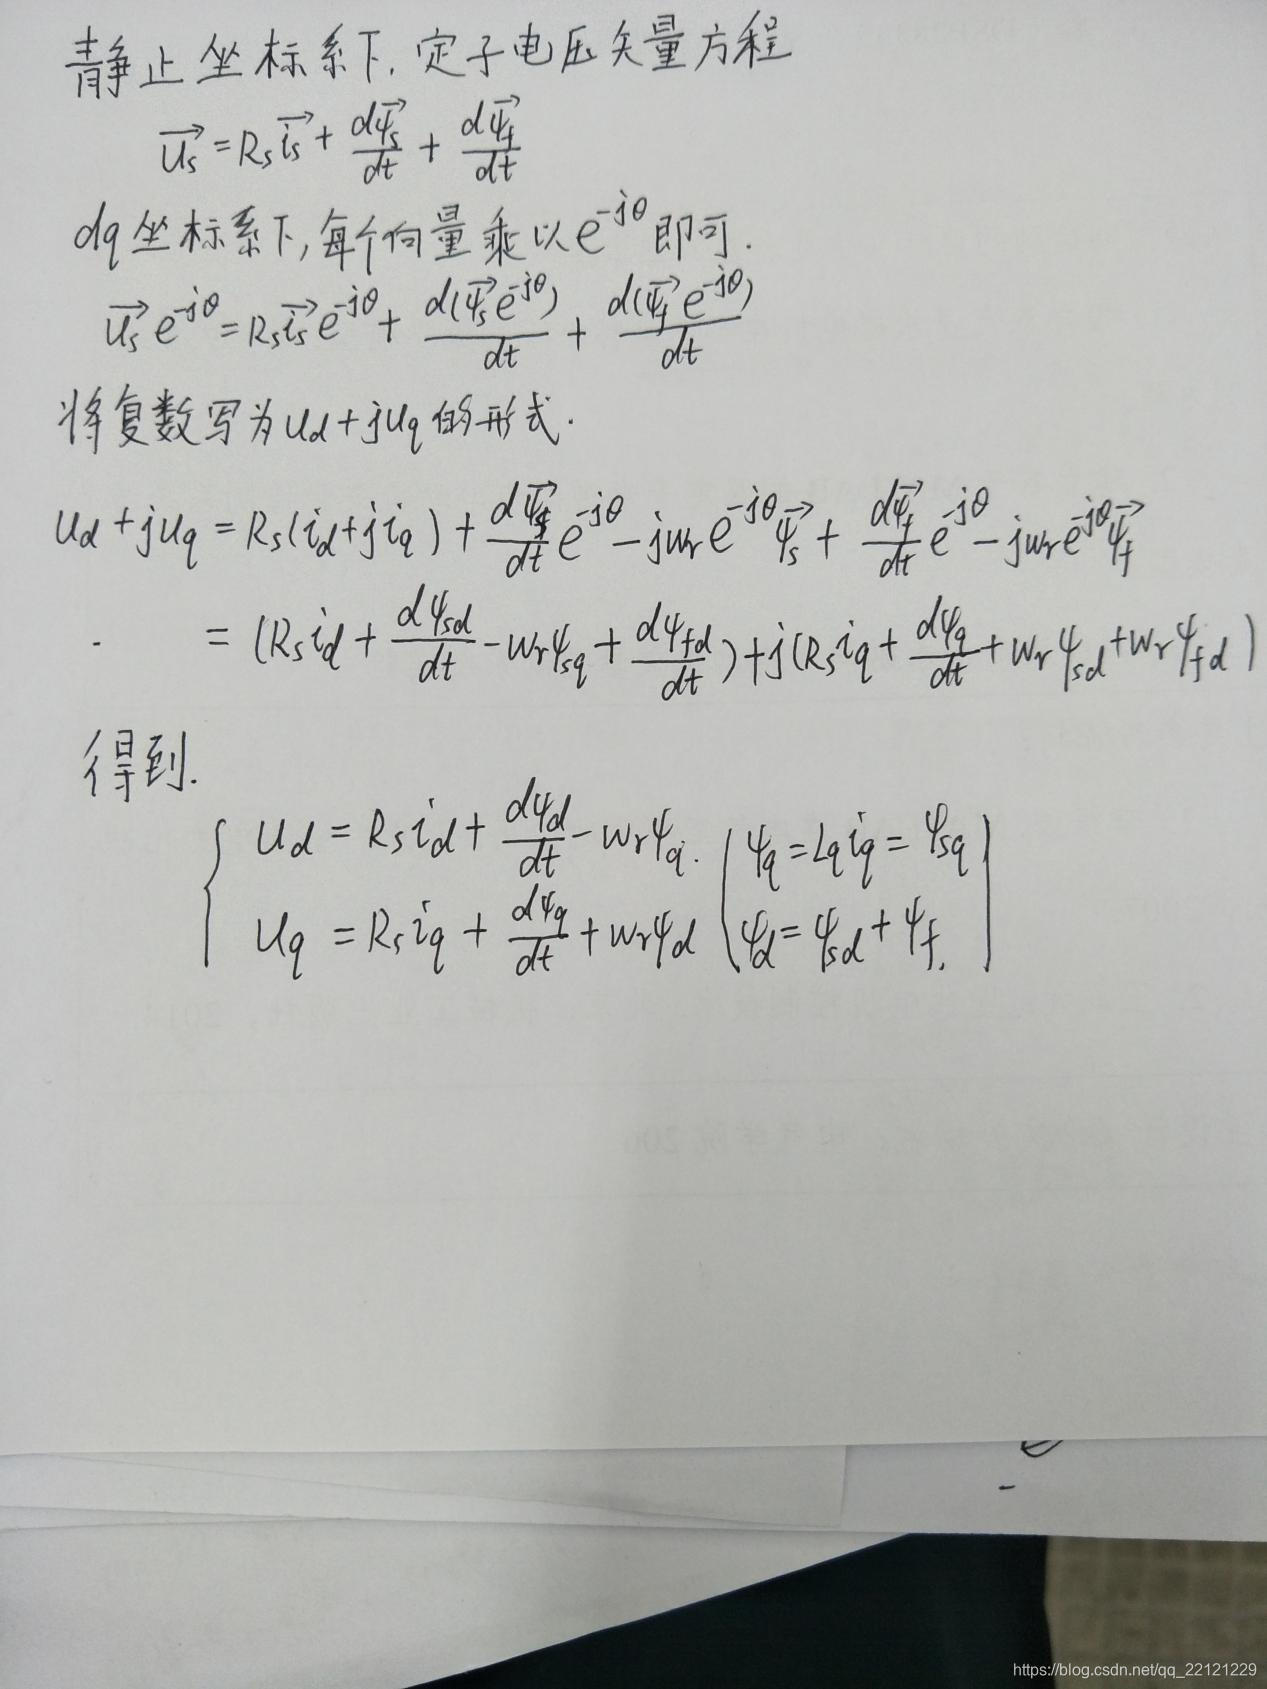 静止坐标系下,定子电压矢量方程
$\overrightarrow{u_s} = R_s \overrightarrow{i_s} + \frac{d\overrightarrow{\psi_s}}{dt} + \frac{d\overrightarrow{\psi_f}}{dt}$
dq坐标系下,每个向量乘以 $e^{-j\theta}$ 即可.
$\overrightarrow{u_s} e^{-j\theta} = R_s \overrightarrow{i_s} e^{-j\theta} + \frac{d(\overrightarrow{\psi_s} e^{-j\theta})}{dt} + \frac{d(\overrightarrow{\psi_f} e^{-j\theta})}{dt}$
将复数写为 $u_d + ju_q$ 的形式.
$u_d + ju_q = R_s(i_d + ji_q) + \frac{d\overrightarrow{\psi_s}}{dt} e^{-j\theta} - jw_r e^{-j\theta} \overrightarrow{\psi_s} + \frac{d\overrightarrow{\psi_f}}{dt} e^{-j\theta} - jw_r e^{-j\theta} \overrightarrow{\psi_f}$
$= (R_s i_d + \frac{d\psi_{sd}}{dt} - w_r \psi_{sq} + \frac{d\psi_{fd}}{dt}) + j(R_s i_q + \frac{d\psi_q}{dt} + w_r \psi_{sd} + w_r \psi_{fd})$
得到.
$u_d = R_s i_d + \frac{d\psi_d}{dt} - w_r \psi_q.$ $\psi_q = L_q i_q = \psi_{sq}$
$u_q = R_s i_q + \frac{d\psi_q}{dt} + w_r \psi_d$ $\psi_d = \psi_{sd} + \psi_f.$
https://blog.csdn.net/qq_22121229